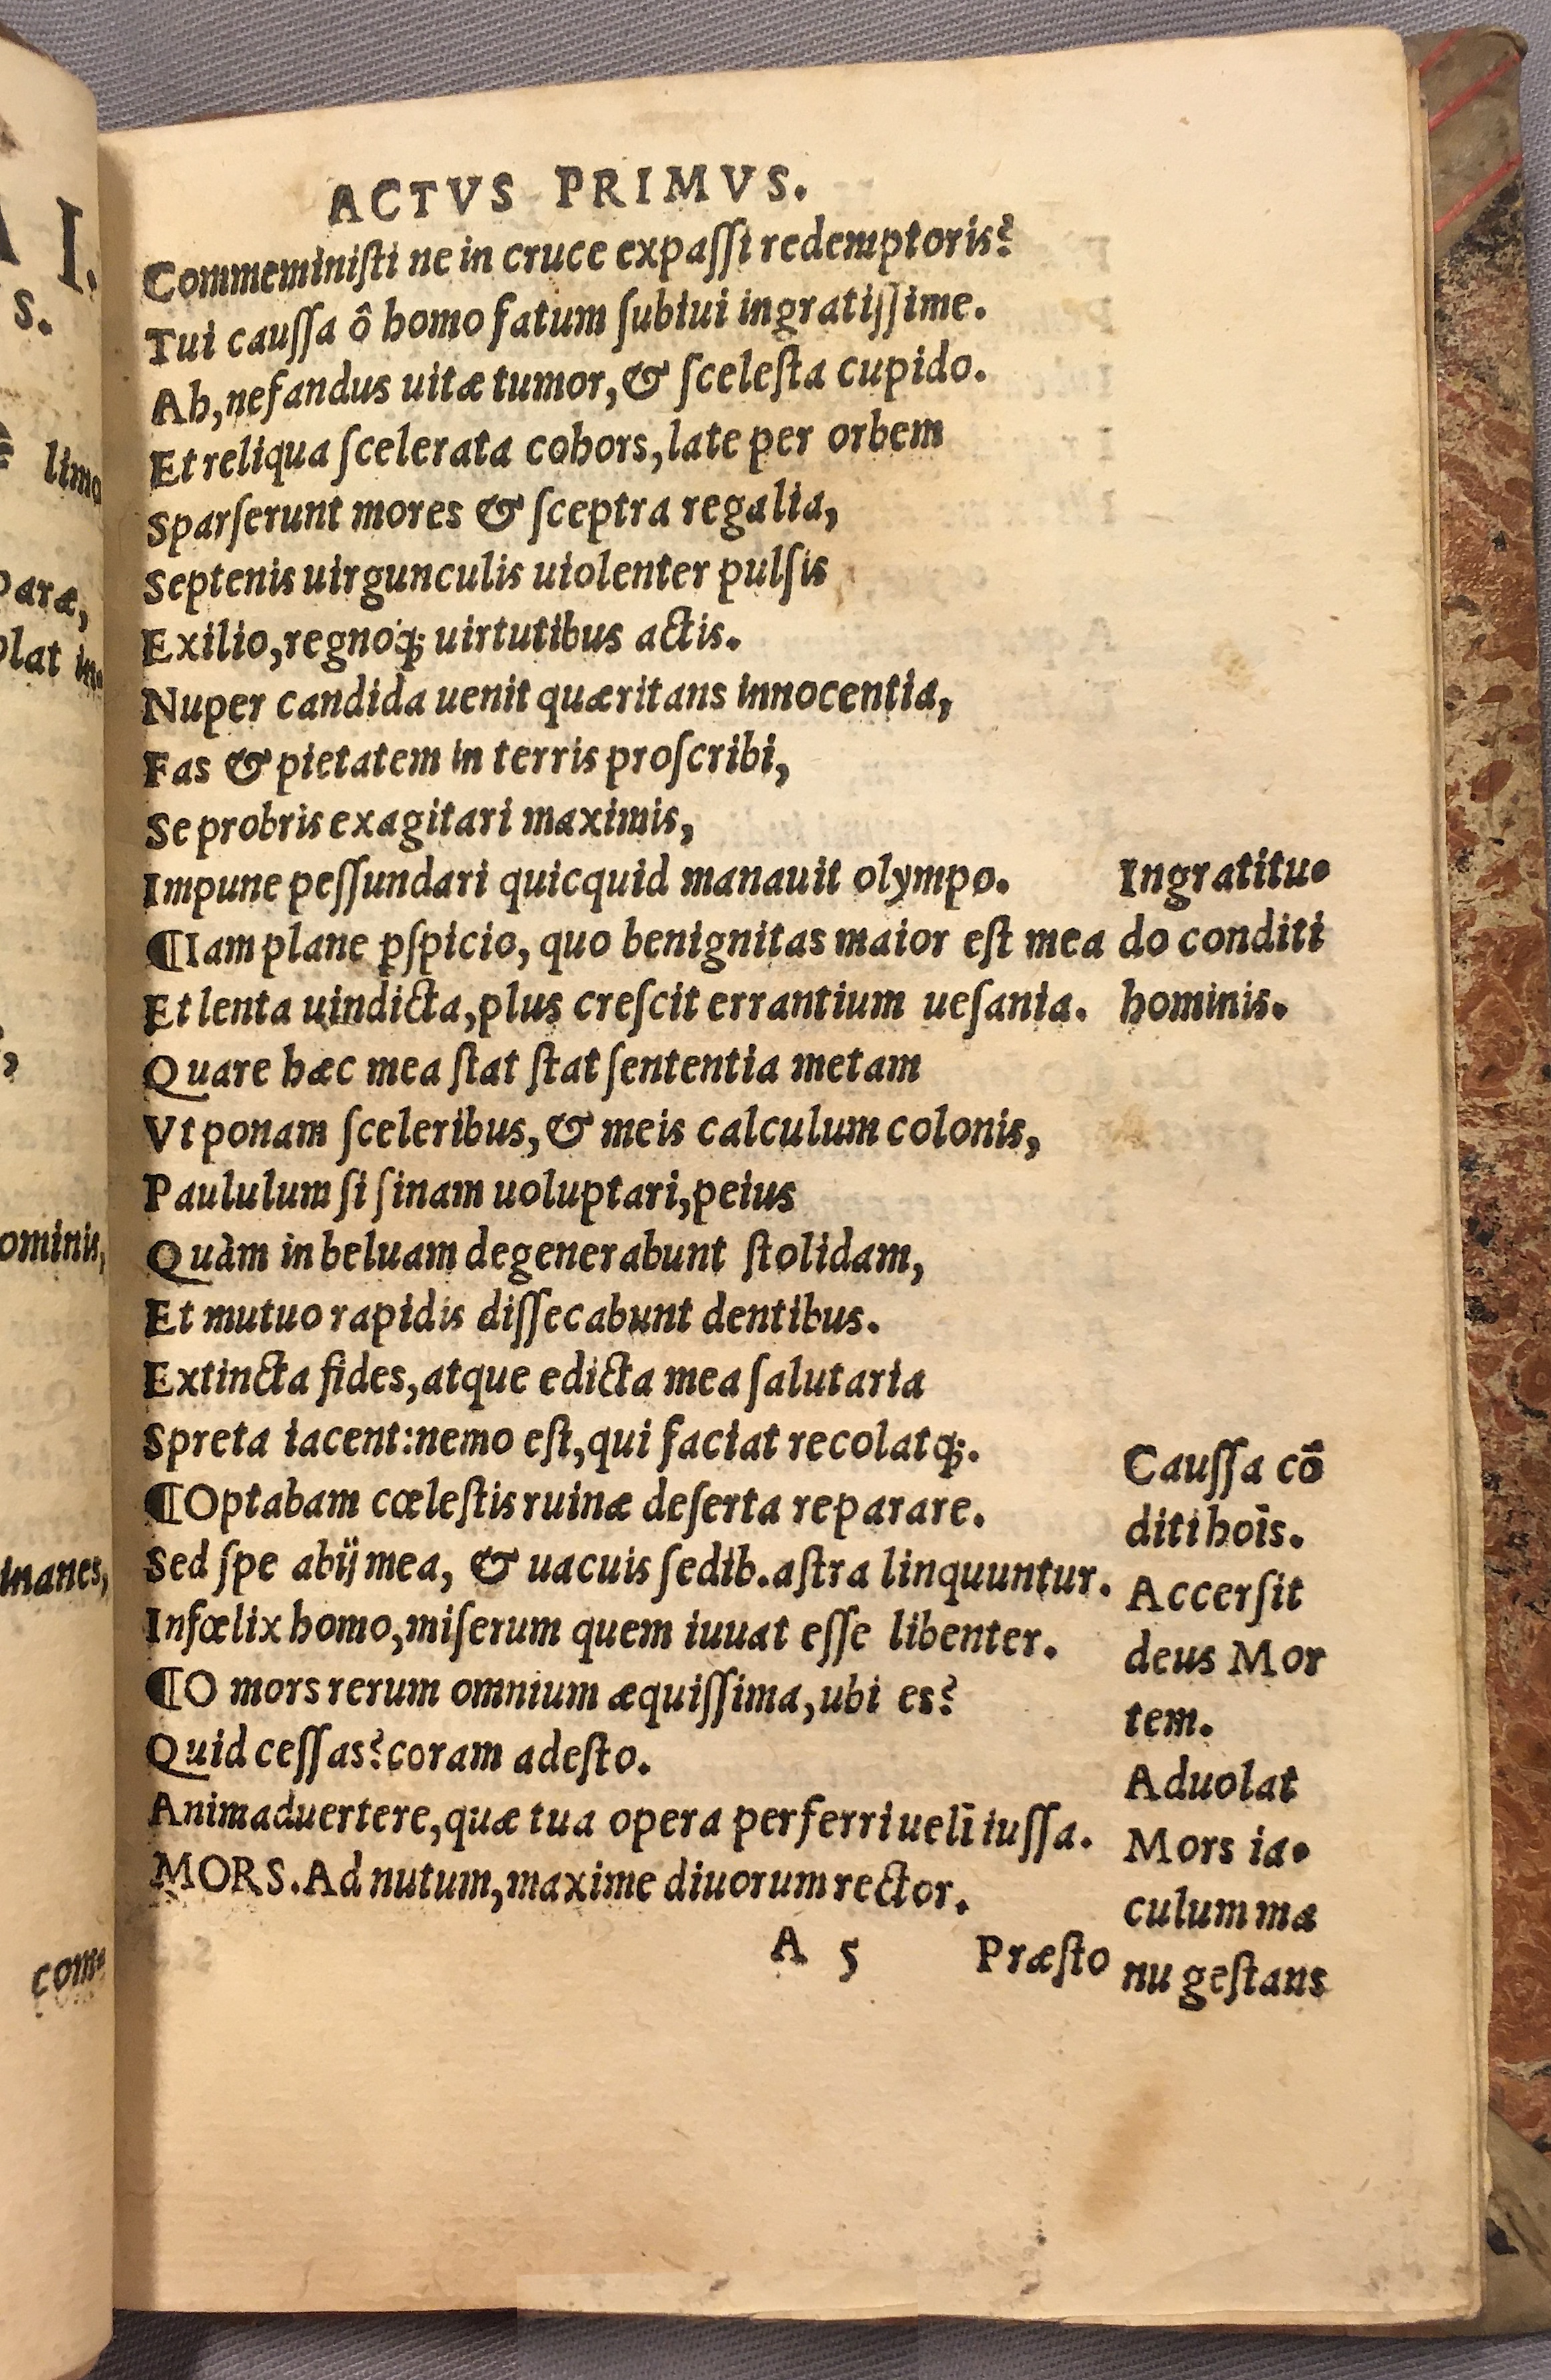 ACTVS PRIMVS.
Commeminiſti ne in cruce expaſſi redemptoris?
Tui cauſſa ô homo fatum ſubiui ingratiſſime.
Ah, nefandus uitæ tumor, & ſceleſta cupido.
Et reliqua ſcelerata cohors, late per orbem
Sparſerunt mores & ſceptra regalia,
Septenis uirgunculis uiolenter pulſis
Exilio, regnoq́; uirtutibus actis.
Nuper candida uenit quæritans innocentia,
Fas & pietatem in terris proſcribi,
Se probris exagitari maximis,
Impune peſſundari quicquid manauit olympo.
¶Iam plane ꝑſpicio, quo benignitas maior eſt mea
Et lenta uindicta, plus creſcit errantium ueſania.
Quare hæc mea ſtat ſtat ſententia metam
Vt ponam ſceleribus, & meis calculum colonis,
Paululum ſi ſinam uoluptari, peius
Quàm in beluam degenerabunt ſtolidam,
Et mutuo rapidis diſſecabunt dentibus.
Extincta fides, atque edicta mea ſalutaria
Spreta iacent: nemo eſt, qui faciat recolatq́;.
¶Optabam cœleſtis ruinæ deſerta reparare.
Sed ſpe abij mea, & uacuis ſedib. aſtra linquuntur.
Infœlix homo, miſerum quem iuuat eſſe libenter.
¶O mors rerum omnium æquiſſima, ubi es?
Quid ceſſas? coram adeſto.
Animaduertere, quæ tua opera perferri uelī iuſſa.
MORS. Ad nutum, maxime diuorum rector.
A 5
Præſto
Ingratitu-
do conditi
hominis.
Cauſſa cō
diti hoīs.
Accerſit
deus Mor
tem.
Aduolat
Mors ia-
culum ma
nu geſtans
A I.
S.
lima
paræ,
olat in-
ominis,
inanes,
come